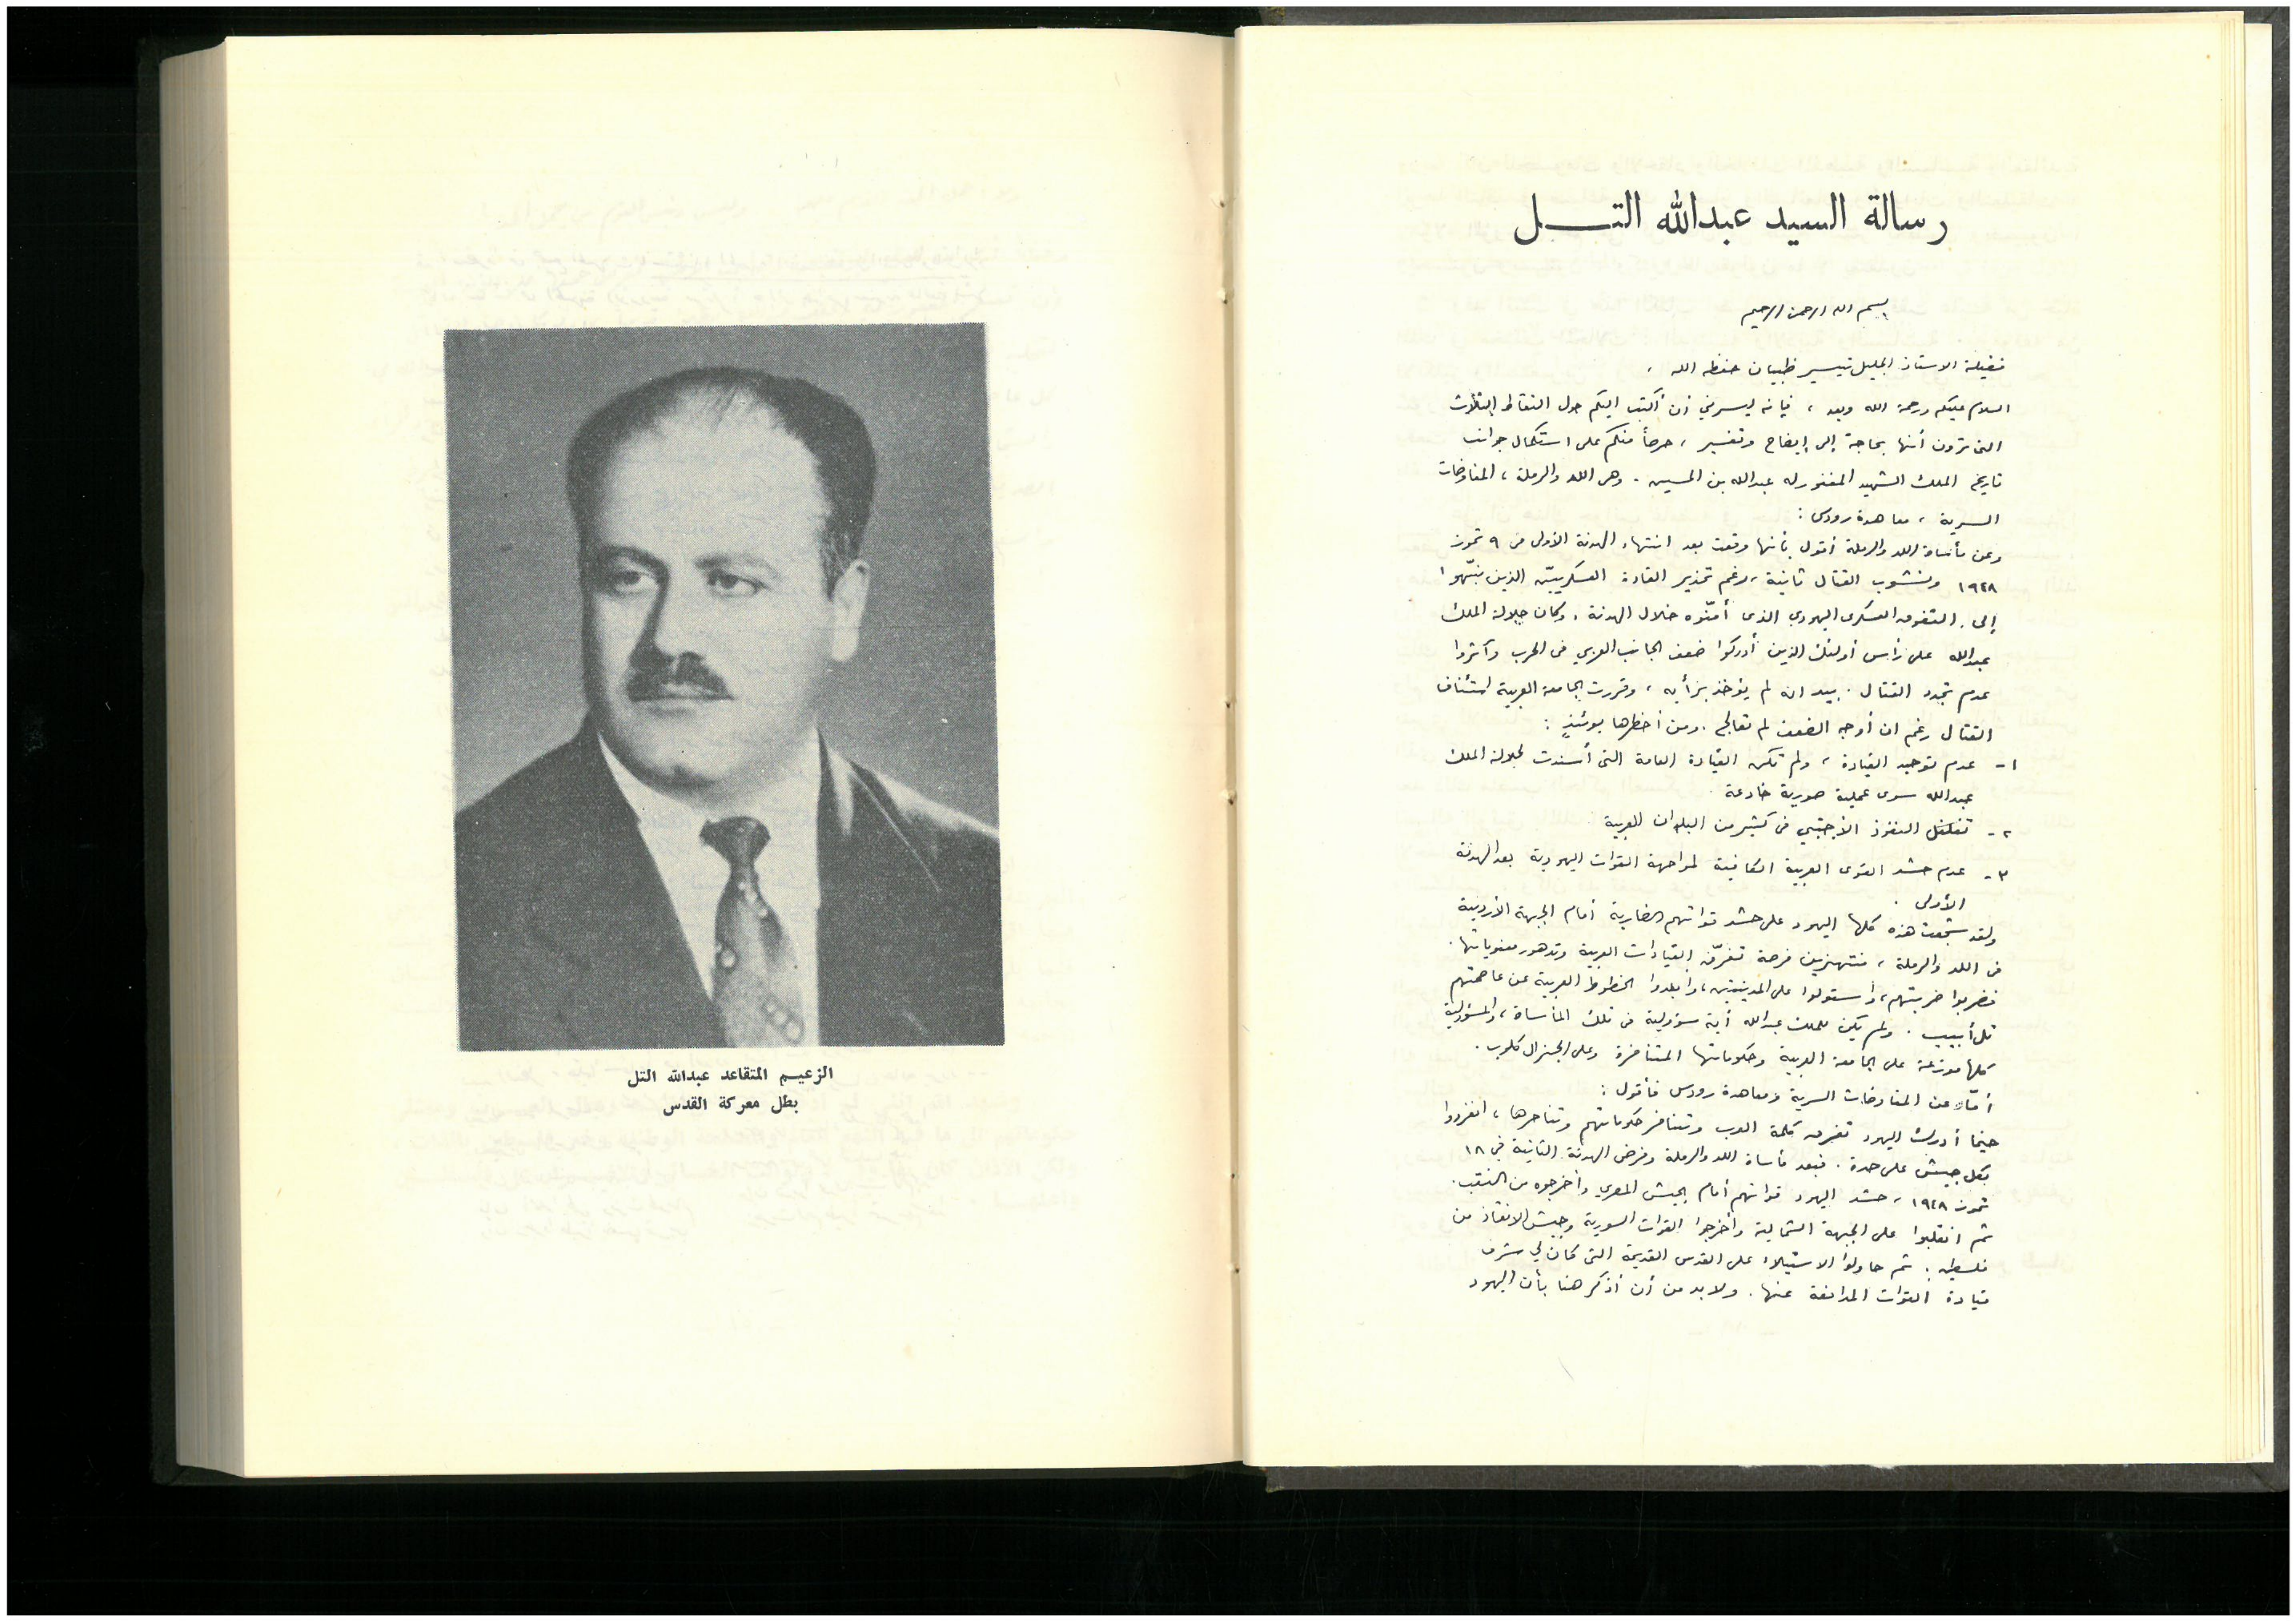 رسالة السيد عبدالله التـــــل
بسم الله الرحمن الرحيم
فضيلة الاستاذ الجليل تيسير ظبيان حفظه الله ،
السلام عليكم ورحمة الله وبعد ، فإنه ليسرني أن أكتب اليكم حول النقاط الثلاث
التى ترون أنها بحاجة إلى إيضاح وتفسير ، حرصاً منكم على استكمال جوانب
تاريخ الملك الشهيد المغفور له عبدالله بن الحسين . وهى اللد والرملة ، المفاوضات
السرية ، معاهدة رودس :
وعن مأساة اللد والرملة أقول بأنها وقعت بعد انتهاء الهدنة الأولى فى ٩ تموز
١٩٤٨ ونشوب القتال ثانية ، رغم تحذير القادة العسكريين الذين نبّهوا
إلى التفوق العسكرى اليهودي الذى أمّنوه خلال الهدنة . وكان جلالة الملك
عبدالله على رأس أولئك الذين أدركوا ضعف الجانب العربي فى الحرب وآثروا
عدم تجدد القتال . بيد انه لم يؤخذ برأيه ، وقررت الجامعة العربية استئناف
القتال رغم ان أوجه الضعف لم تعالج . ومن أخطرها يومئذٍ :
١ - عدم توحيد القيادة ، ولم تكن القيادة العامة التى أسندت لجلالة الملك
عبدالله سوى عملية صورية خادعة .
٢ - تغلغل النفوذ الأجنبي فى كثير من البلدان العربية
٣ - عدم حشد القوى العربية الكافية لمواجهة القوات اليهودية بعد الهدنة
الأولى .
ولقد شجعت هذه كلها اليهود على حشد قواتهم الضاربة أمام الجبهة الأردنية
فى اللد والرملة ، منتهزين فرصة تفرّق القيادات العربية وتدهور معنوياتها .
فضربوا ضربتهم ، واستولوا على المدينتين ، وابعدوا الخطوط العربية عن عاصمتهم
تل أبيب . ولم يكن للملك عبدالله أية مسؤولية فى تلك المأساة ، والمسؤولية
كلها موزعة على الجامعة العربية وحكوماتها المتنافرة وعلى الجنرال كلوب .
أمّا عن المفاوضات السرية ومعاهدة رودس فأقول :
حينما أدرك اليهود تفرق كلمة العرب وتنافر حكوماتهم وتناحرها ، انفردوا
بكل جيش على حدة . فبعد مأساة اللد والرملة وفرض الهدنة الثانية في ١٨
تموز ١٩٤٨ ، حشد اليهود قواتهم أمام الجيش المصري وأخرجوه من النقب .
ثم انقلبوا على الجبهة الشمالية وأخرجوا القوات السورية وجيش الانقاذ من
فلسطين . ثم حاولوا الاستيلاء على القدس القديمة التى كان لي شرف
قيادة القوات المدافعة عنها . ولا بد من أن أذكر هنا بأن اليهود
الزعيم المتقاعد عبدالله التل
بطل معركة القدس